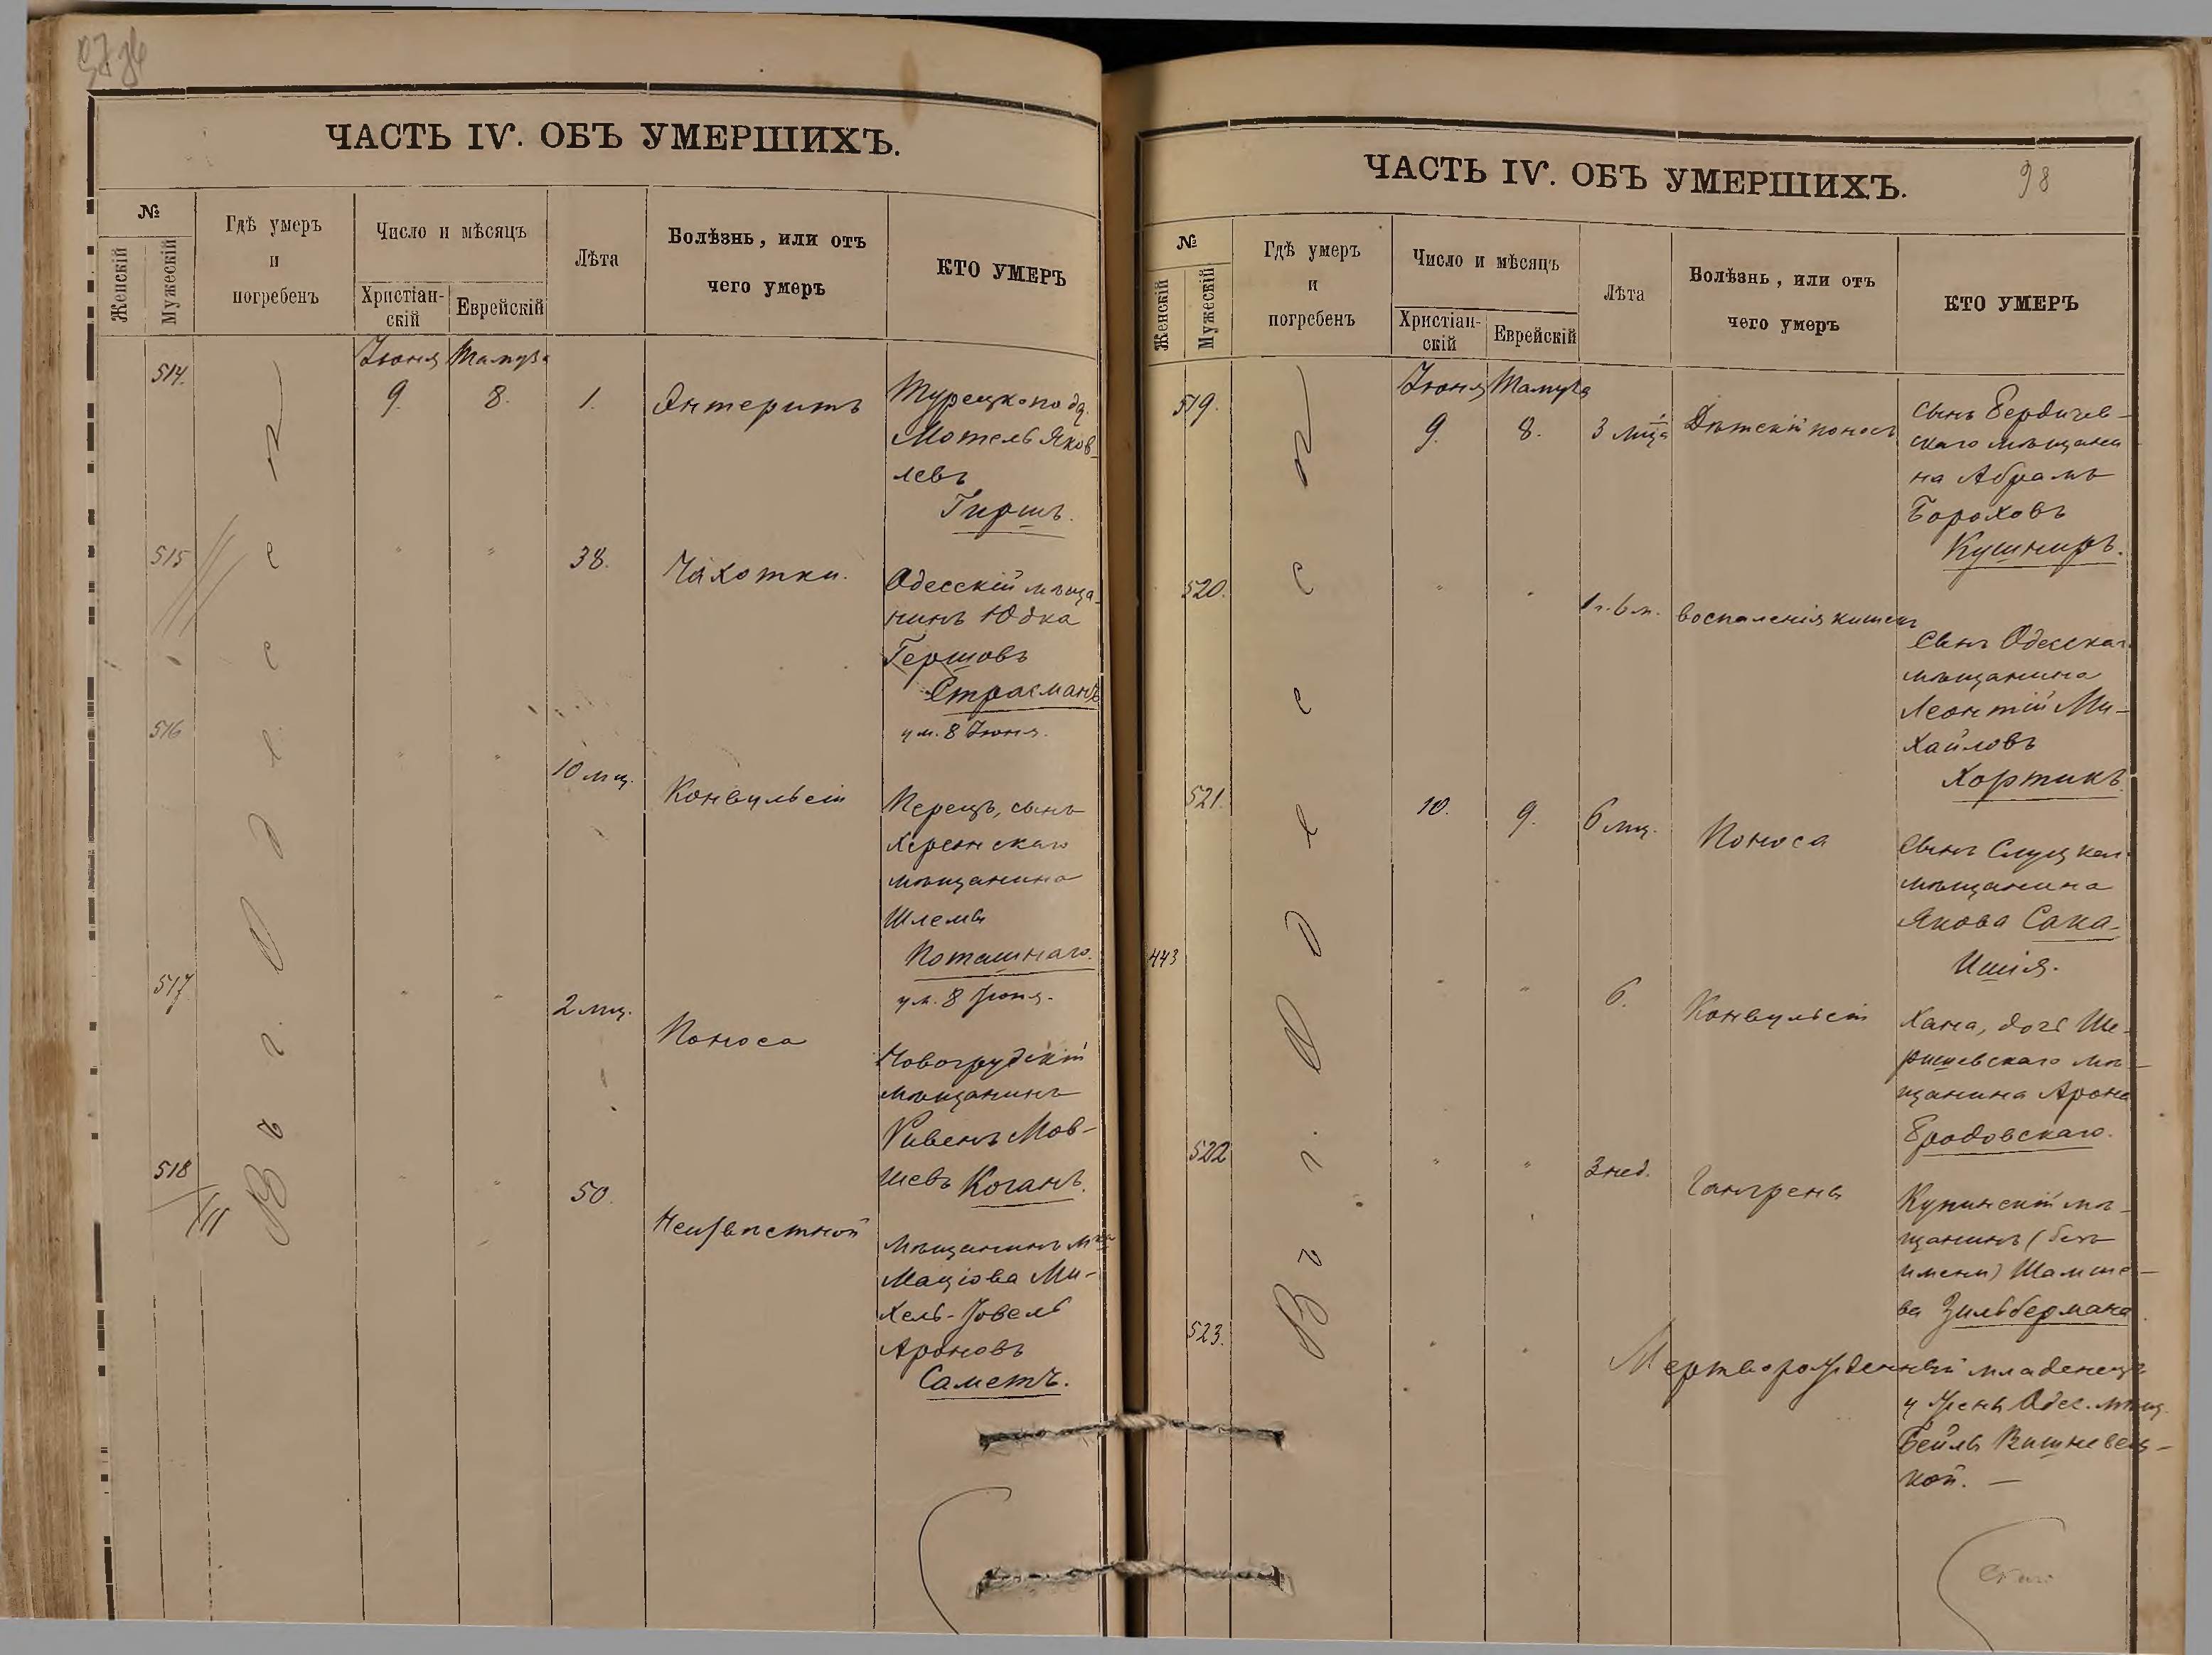 ЧАСТЬ IV. ОБЪ УМЕРШИХЪ.
№
Женскій
Мужескій
Гдѣ умеръ
и
погребенъ
Число и мѣсяцъ
Христіан-
скій
Еврейскій
Лѣта
Болѣзнь, или отъ
чего умеръ
КТО УМЕРЪ
Въ г. Одессѣ
Іюня
Тамуза
514.
9.
8.
1.
Энтеритъ
Турецкоподд.
Мотель Яков-
левъ
Гиршъ.
515
"
"
38.
Чахотки.
Одесскій мѣща-
нинъ Юдка
Гершовъ
Страсманъ
ум. 8 Іюня.
516
"
"
10 мц.
Конвульсіи
Перецъ, сынъ
Херсонскаго
мѣщанина
Шлемы
Поташнаго.
ум. 8 Іюня.
517
"
"
2 мц.
Поноса
Новогрудскій
мѣщанинъ
Рувенъ Мов-
шевъ Коганъ.
518
"
"
50.
Неизвѣстной
мѣщанинъ м-ка
Маціова Ми-
хель-Іовель
Ароновъ
Саметъ.
ЧАСТЬ IV. ОБЪ УМЕРШИХЪ.
98
№
Женскій
Мужескій
Гдѣ умеръ
и
погребенъ
Число и мѣсяцъ
Христіан-
скій
Еврейскій
Лѣта
Болѣзнь, или отъ
чего умеръ
КТО УМЕРЪ
Въ г. Одессѣ
Іюня
Тамуза
519.
9.
8.
3 мца
Дѣтскій поносъ
Сынъ Бердичев-
скаго мѣщани
на Абрамъ
Бороховъ
Кушниръ.
520.
"
"
1 г. 6 м.
воспаленія кишекъ
Сынъ Одесскаго
мѣщанина
Леонтій Ми-
хайловъ
Хортикъ.
521.
10.
9.
6 мц.
Поноса
Сынъ Слуцкаго
мѣщанина
Якова Сака-
Ишія.
443
"
"
6.
Конвульсіи
Хана, дочь Ше-
ришевскаго мѣ-
щанина Арона
Бродовскаго.
522
"
"
3 нед.
Гангрены
Купинскій мѣ-
щанинъ (безъ
имени) Шамше-
ва Зильбермана.
523.
"
"
Мертворожденный младенецъ
у жены Одес. мѣщ.
Бейлы Вишневец-
кой. —